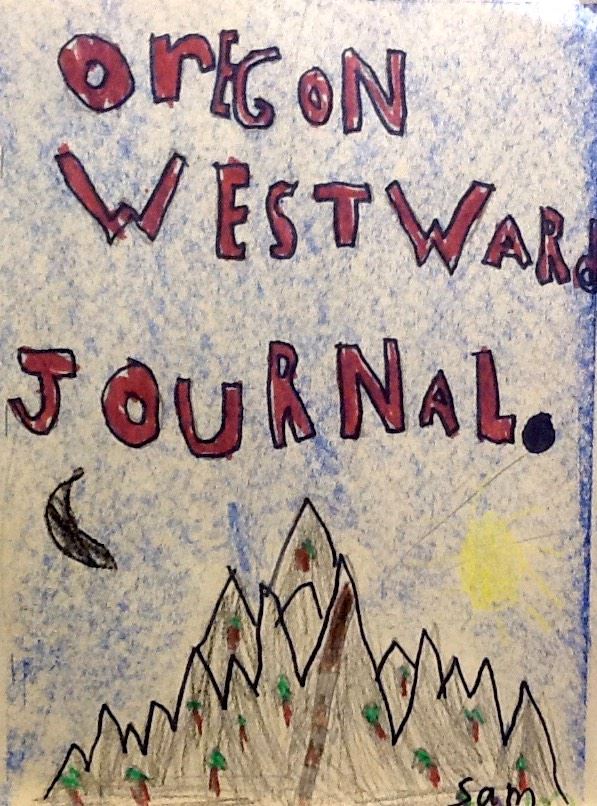 OrEGON
WESTWARd
JOURNAL.
sam